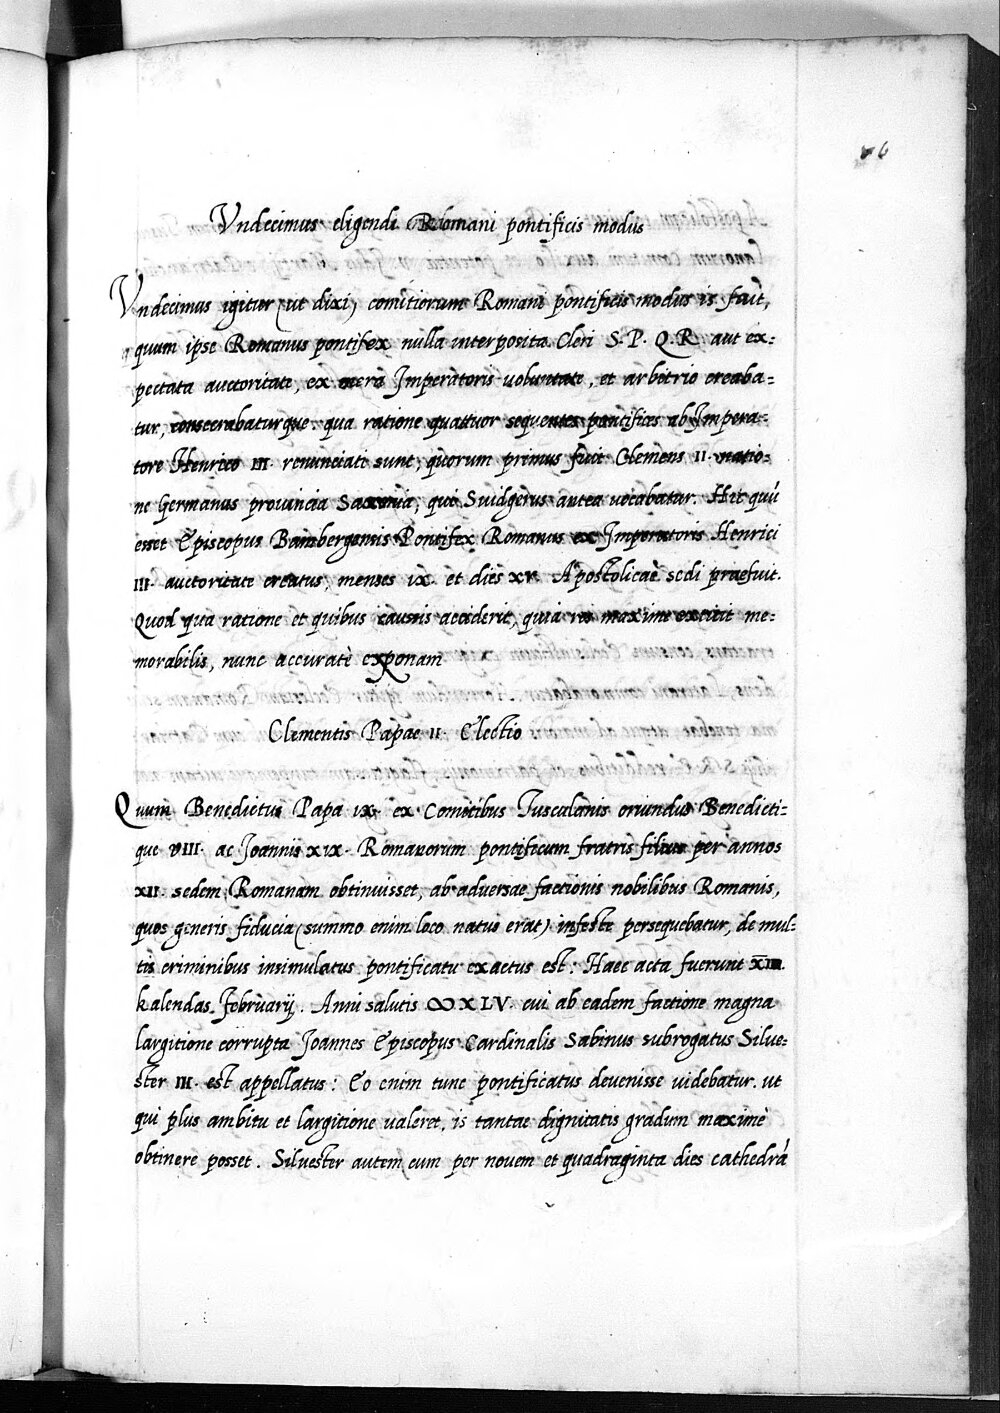 Vndecimus eligendi Romani pontificis modus
Vndecimus igitur (ut dixi) comitiorum Romani pontificis modus is fuit,
quum ipse Romanus pontifex nulla interposita Cleri S. P. Q. R. aut ex=
pectata auctoritate, ex mera Imperatoris voluntate, et arbitrio creaba=
tur, consecrabaturque. qua ratione quattuor sequentes pontifices ab Impera=
tore Henrico III. renunciati sunt, quorum primus fuit Clemens II. natio=
ne Germanus provincia Saxonia, qui Suidgerus antea vocabatur. Hic quū
esset Episcopus Bambergensis Pontifex Romanus ex Imperatoris Henrici
III. auctoritate creatus, menses IX. et dies XV. Apostolicae sedi praefuit.
Quod qua ratione et quibus causis acciderit, quia res maxime extitit me=
morabilis, nunc accuratè exponam
Clementis Papae II. Electio
Quum Benedictus Papa IX. ex Comitibus Tusculanis oriundus Benedicti=
que VIII. ac Joannis XIX. Romanorum pontificum fratris filius per annos
XII. sedem Romanam obtinuisset, ab adversae factionis nobilibus Romanis,
quos generis fiducia (summo enim loco natus erat) infeste persequebatur, de mul=
tis criminibus insimulatus pontificatu exactus est: Haec acta fuerunt XIII.
kalendas Februarij. Anni salutis ∞XLV. cui ab eadem factione magna
largitione corrupta Joannes Episcopus Cardinalis Sabinus subrogatus Silue=
ster III. est appellatus: Eo enim tunc pontificatus devenisse uidebatur. ut
qui plus ambitu et largitione valeret, is tantae dignitatis gradum maximè
obtinere posset. Siluester autem cum per nouem et quadraginta dies cathedrā